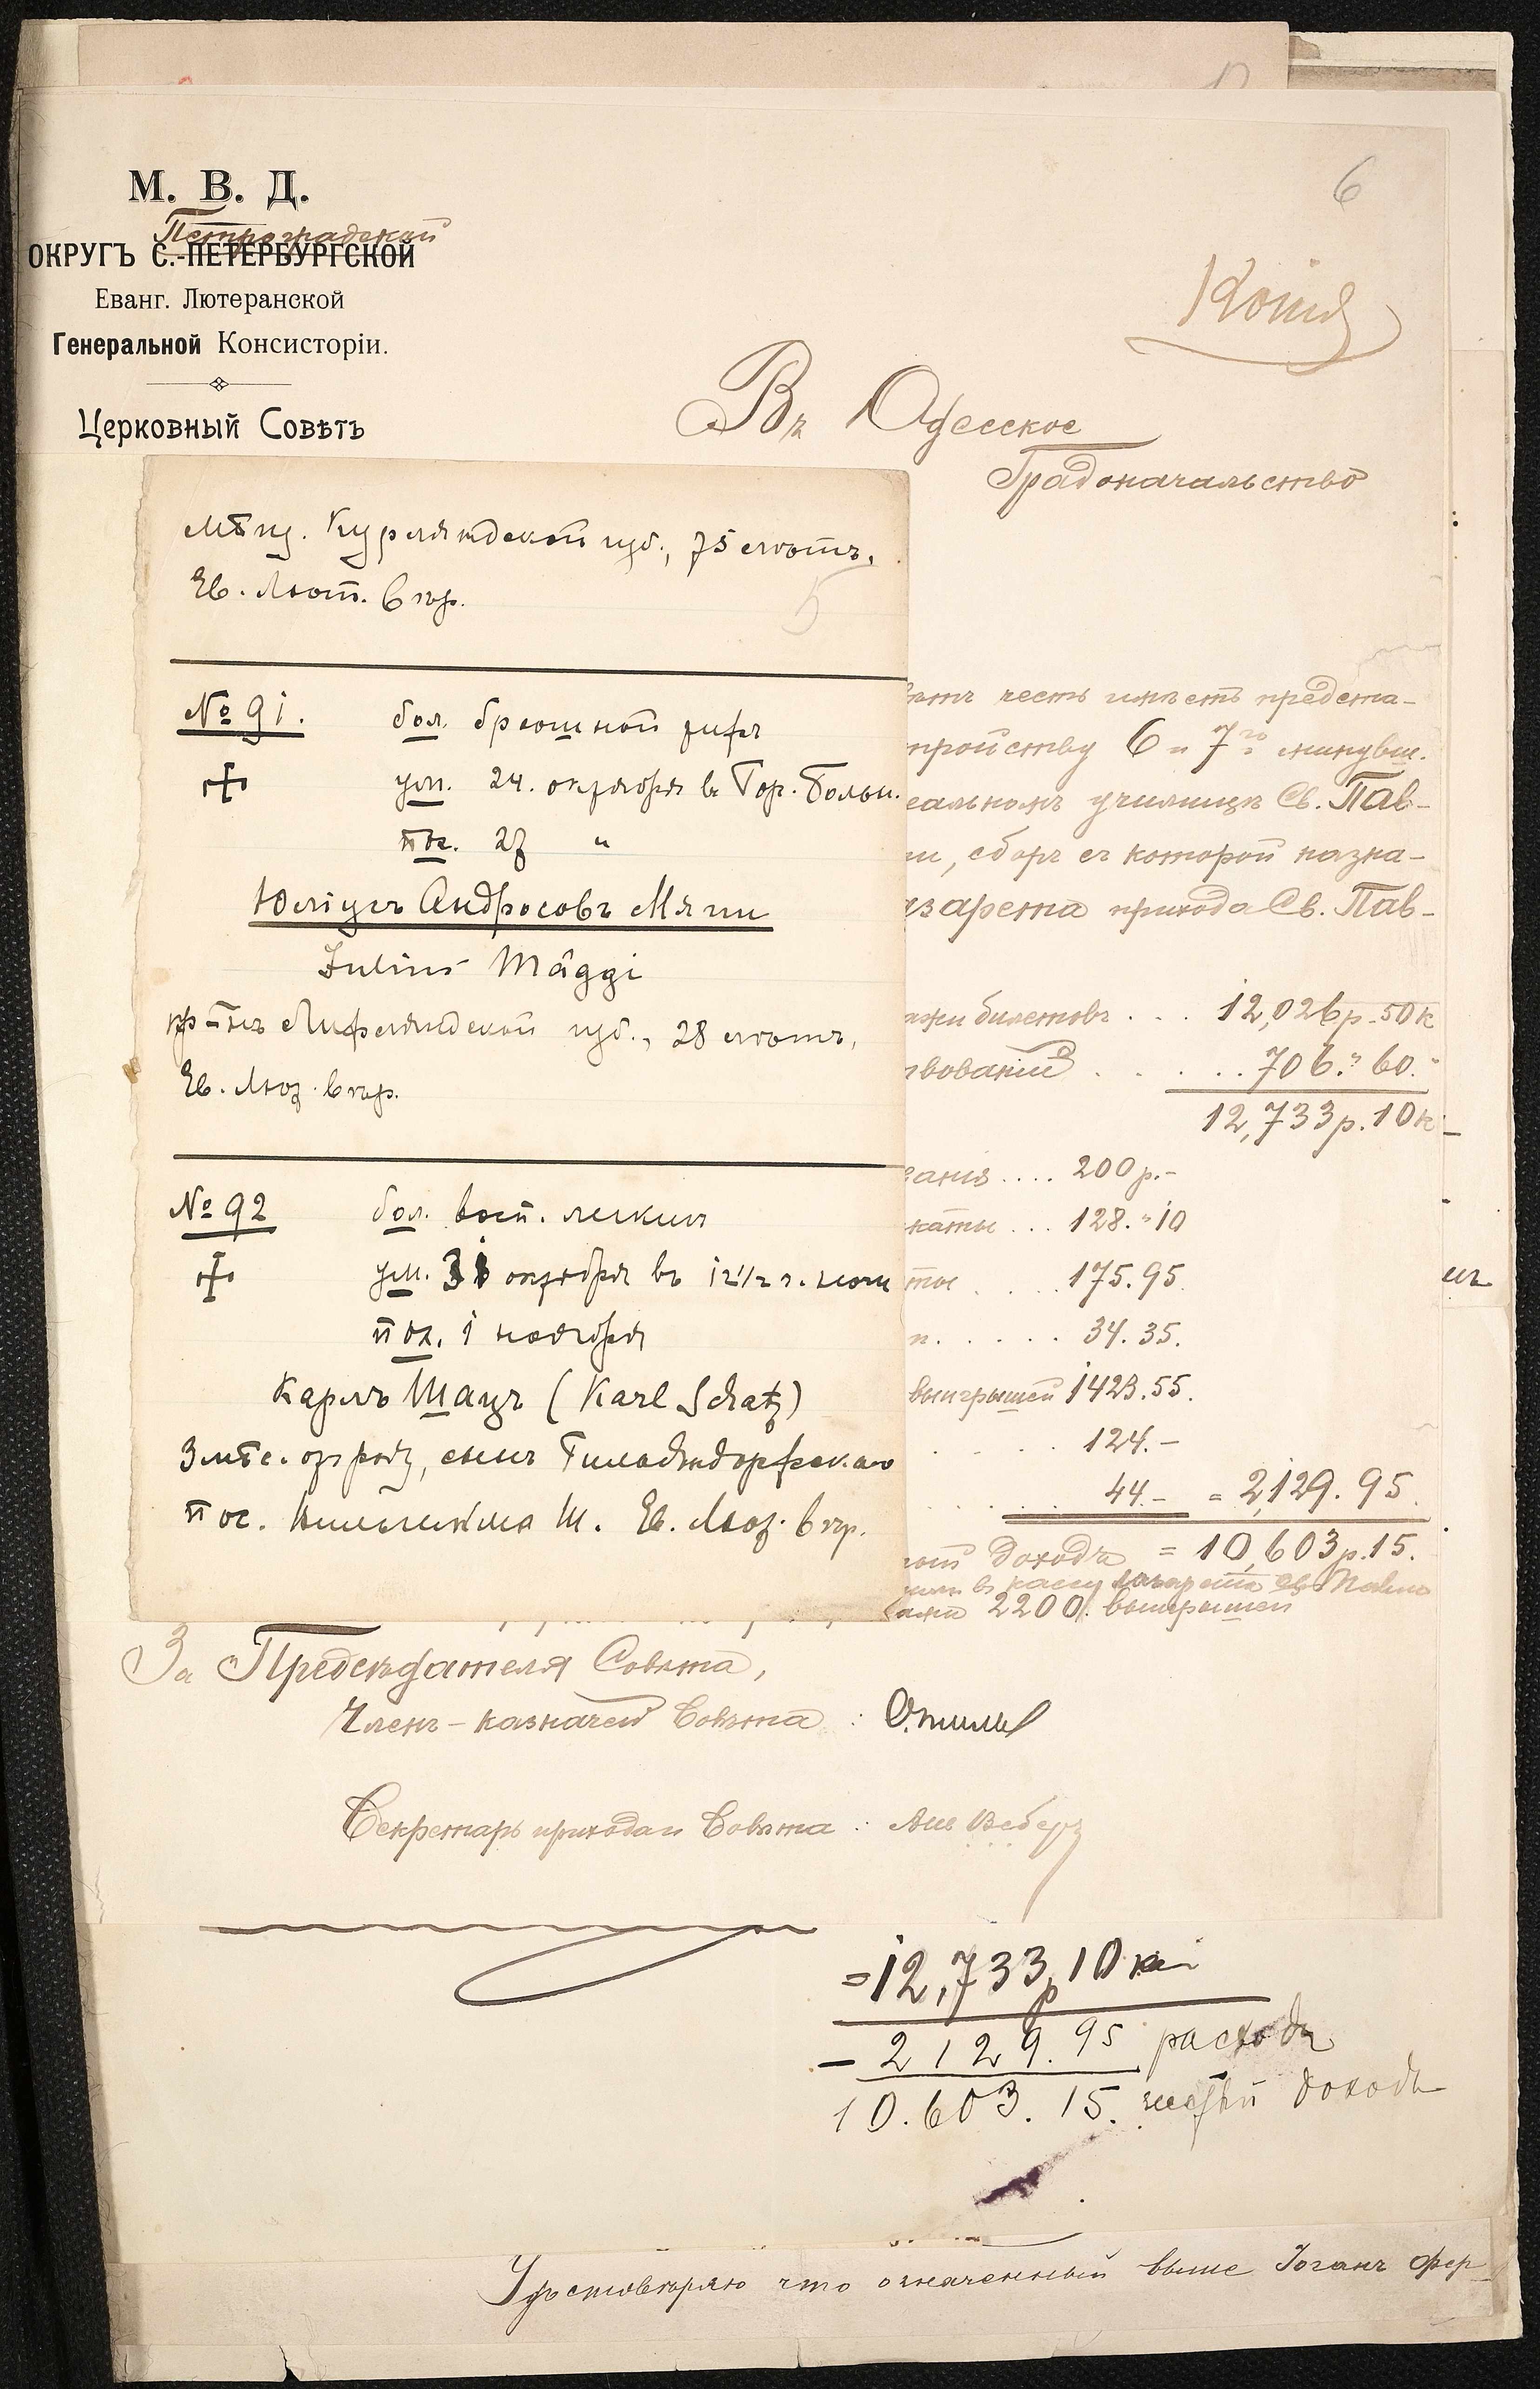 6
М. В. Д.
Петроградской
ОКРУГЪ С.-ПЕТЕРБУРГСКОЙ
Еванг. Лютеранской
Генеральной Консисторіи.
Церковный Совѣтъ
Копія
Въ Одесское
Градоначальство
Мѣщ. Курляндской губ., 75 лѣтъ,
Ев. Лют. вѣр.
5
№ 91. бол. брюшной тифъ
ум. 24. октября въ Гор. Больн.
пог. 27 "
Юліусъ Андросовъ Мяги
Julius Mäggi
кр-нъ Лифляндской губ., 28 лѣтъ,
Ев. Лют. вѣр.
№ 92 бол. восп. легкихъ
ум. 31 октября въ 12 1/2 ч. ночи
пог. 1 ноября
Карлъ Шацъ (Karl Schatz)
3 мѣс. отъ роду, сынъ Гильдендорфскаго
пос. Вильгельма Ш. Ев. Лют. вѣр.
ѣтъ честь имѣетъ предста-
тройству 6 и 7го минувш.
еальномъ училищѣ Св. Пав-
ли, сборъ съ которой назна-
азарета прихода Св. Пав-
ажи билетовъ . . . 12,026р. 50к
твованій . . . . . 706. " 60. "
12,733р. 10к
ганія .... 200р.-
каты ... 128. " 10
тые . . . . 175.95.
п. . . . . . 34. 35.
выигрышей 1423.55.
. . . . 124.-
. . . . . 44.- = 2,129. 95.
доходъ = 10,603р.15.
въ кассу лазарета Св. Павла
ажи 2200 выигрышей
За Предсѣдателя Совѣта,
Членъ-казначей Совѣта :
Секретарь прихода и Совѣта : Веберъ
=12,733р 10 к
- 2129.95 расходъ
10.603. 15. чистый доходъ
Удостовѣряю что означенный выше Іоганъ Фер-